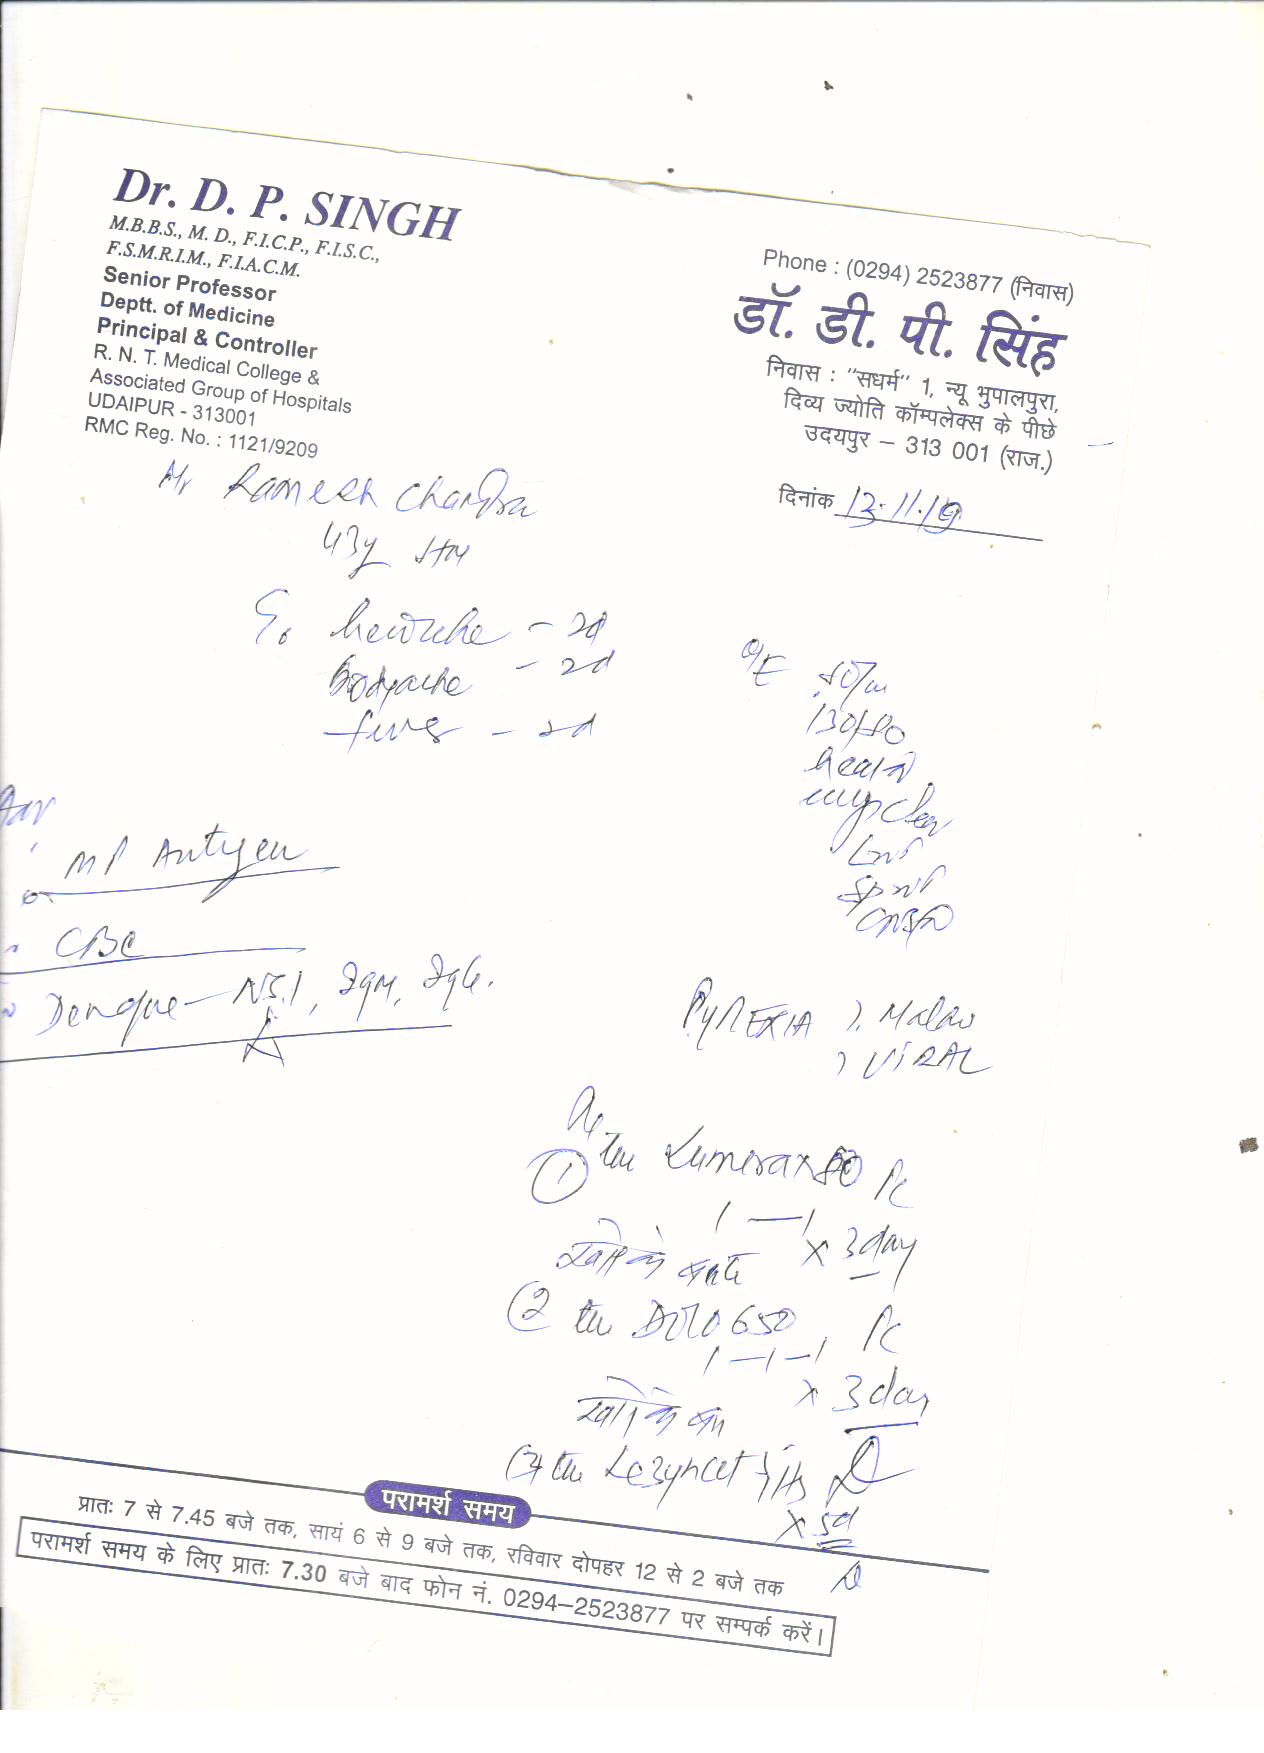 Dr. D. P. SINGH
M.B.B.S., M. D., F.I.C.P., F.I.S.C.,
F.S.M.R.I.M., F.I.A.C.M.
Senior Professor
Deptt. of Medicine
Principal & Controller
R. N. T. Medical College &
Associated Group of Hospitals
UDAIPUR - 313001
RMC Reg. No. : 1121/9209
Phone : (0294) 2523877 (निवास)
डॉ. डी. पी. सिंह
निवास : "सधर्म" 1, न्यू भुपालपुरा,
दिव्य ज्योति कॉम्पलेक्स के पीछे
उदयपुर – 313 001 (राज.)
दिनांक 13.11.19
Mr Ramesh Chandra
43y
headache - 2d
Bodyache - 2d
fever - 2d
O/E
130/80
MP Antigen
CBC
Dengue - NS1, IgM, IgG.
PyREXIA
VIRAL
① Lumerax 80
1 — 1 x 3 day
② DOLO 650
1 — 1 — 1
x 3 day
परामर्श समय
प्रातः 7 से 7.45 बजे तक, सायं 6 से 9 बजे तक, रविवार दोपहर 12 से 2 बजे तक
परामर्श समय के लिए प्रातः 7.30 बजे बाद फोन नं. 0294–2523877 पर सम्पर्क करें।